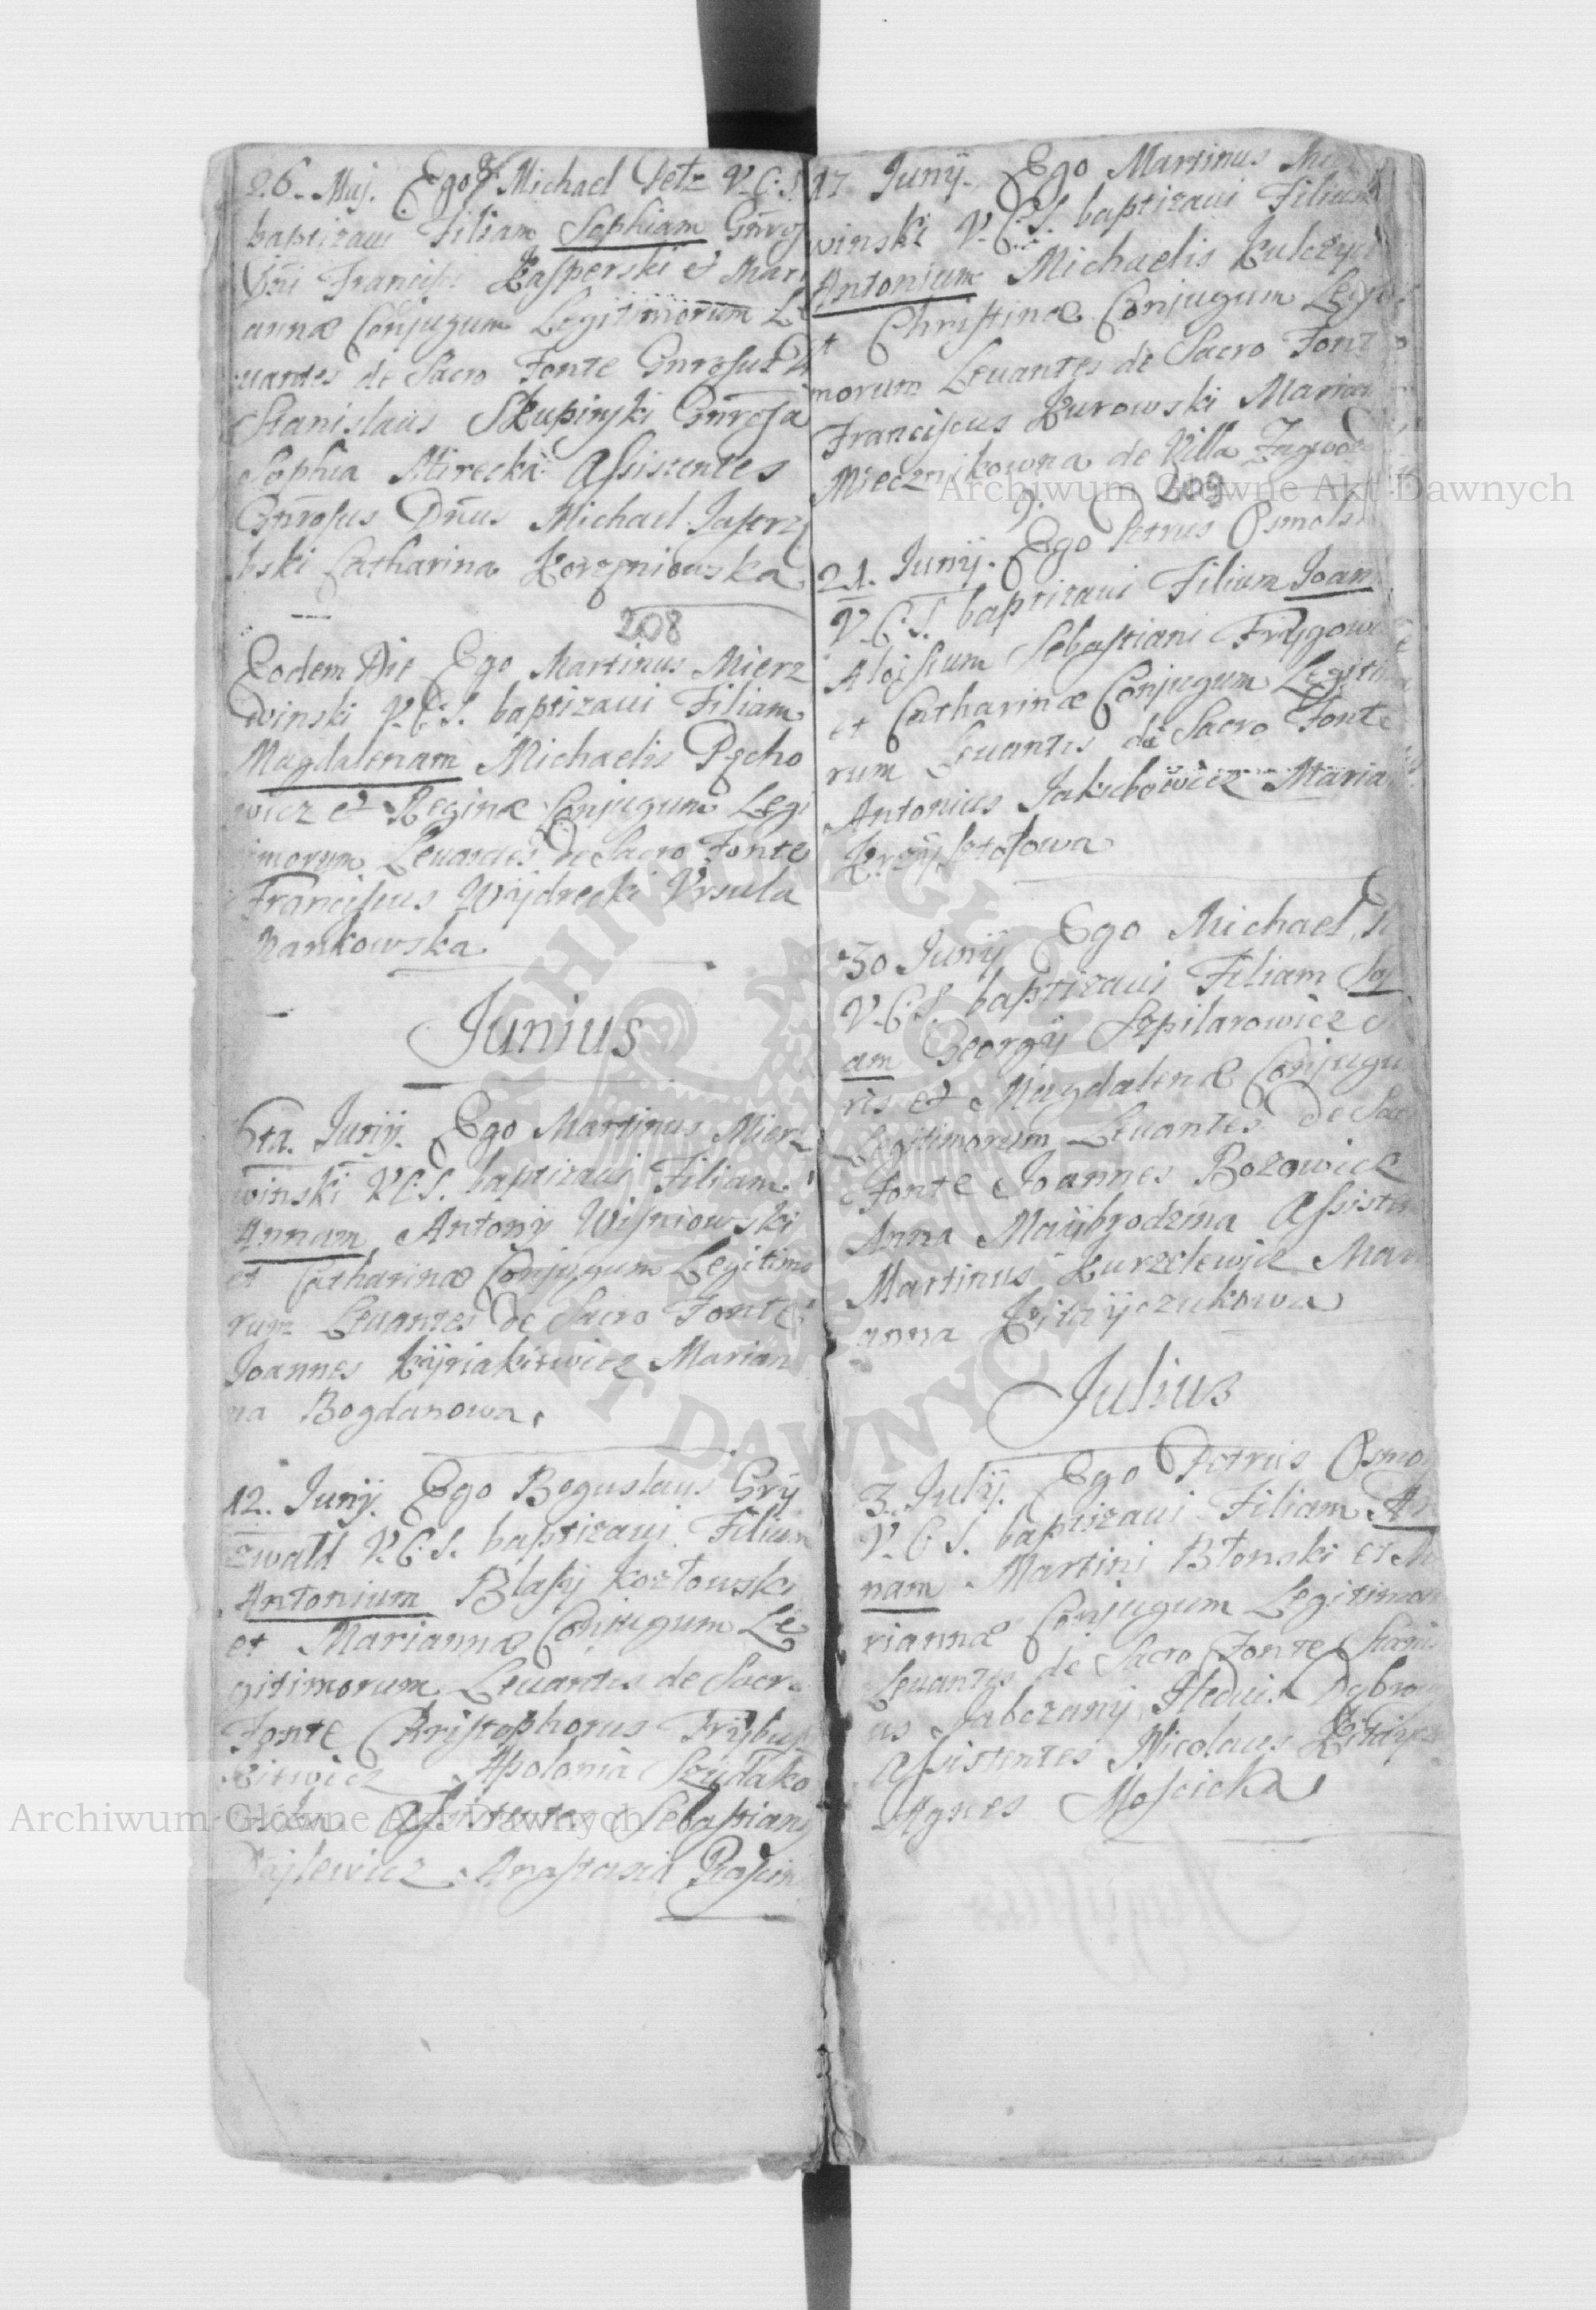 26. Maj. Ego Michael Petz V.C.S.
baptizaui Filiam Sophiam Gnrosi
Dni Francisci Kasperski et Mari
annæ Conjugum Legitimorum Le
uantes de Sacro Fonte Gnrosus
Stanislaus Skupinski Gnrosa
Sophia Mirecka Assistentes
Gnrosus Dnus Michael Jastrzę
bski Catharina Korzeniowska
208
Eodem Die Ego Martinus Mierz
winski V.C.S. baptizaui Filiam
Magdalenam Michaelis Pęcho
wicz et Reginæ Conjugum Legi
timorum Leuantes de Sacro Fonte
Franciscus Wÿdrecki Vrsula
Bankowska
Junius
6ta. Junÿ. Ego Martinus Mierz
winski V.C.S. baptizaui Filiam
Annam Antonÿ Wisniowski
et Catharinæ Conjugum Legitimo
rum Leuantes de Sacro Fonte
Joannes Kÿriakiewicz Marian
na Bogdanowa.
12. Junÿ. Ego Boguslaus Grÿ
zwald V.C.S. baptizaui Filium
Antonium Blasÿ Kozłowski
et Mariannæ Conjugum Le
gitimorum Leuantes de Sacro
Fonte Christophorus Frÿbus
kiewicz Apolonia
Assistentes Sebastianus
Anastasia
17 Junÿ. Ego Martinus
winski V.C.S. baptizaui Filium
Antonium Michaelis Kulczÿc
et Christinæ Conjugum Legiti
morum Leuantes de Sacro Fonte
Franciscus Kurowski Marian
Miecznikowna de Villa
209
21. Junÿ. Ego Petrus Osmols
V.C.S. baptizaui Filium Joan
Aloisium Sebastiani
et Catharinæ Conjugum Legitimo
rum Leuantes de Sacro Fonte
Antonius Jakubowicz Maria
Krzÿsztofowa
30 Junÿ Ego Michael
V.C.S. baptizaui Filiam Soph
am Georgÿ Szpilarowicz
ris et Magdalenæ Conjugu
Legitimorum Leuantes de Sac
Fonte Joannes Bozowicz
Anna Maÿbrodzina Assisten
Martinus Kurzelewicz Mari
anna Kitaÿczukowa
Julius
3. Julÿ. Ego Petrus Osmo
V.C.S. baptizaui Filiam An
nam Martini Błonski et Ma
riannæ Conjugum Legitimor
Leuantes de Sacro Fonte Stanisla
us Jabczanÿ Heduis Dąbrow
Assistentes Nicolaus Kitaÿcz
Agnes Moscicka